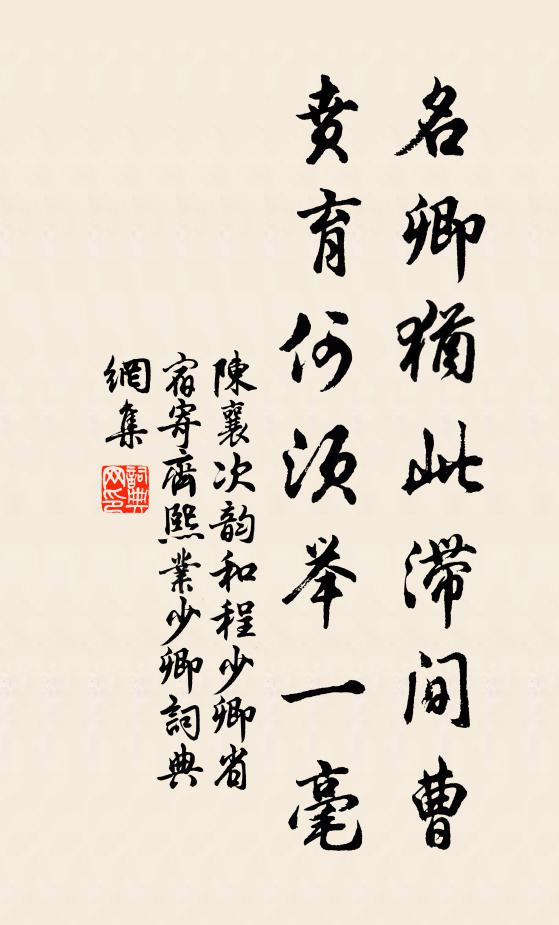 名卿猶此滯間曹
賁育何須举一毫
陳襄次韵和程少卿省
宿寄齊熙業少卿詞典
網集
詞典
网印